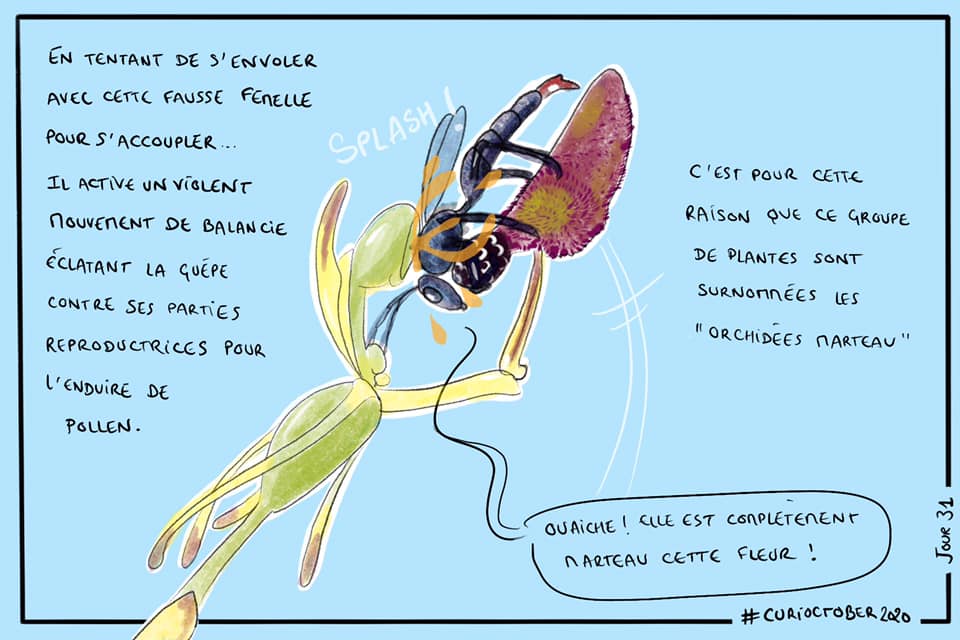 EN TENTANT DE S'ENVOLER
AVEC CETTE FAUSSE FEMELLE
POUR S'ACCOUPLER...
IL ACTIVE UN VIOLENT
MOUVEMENT DE BALANCIE
ÉCLATANT LA GUÊPE
CONTRE SES PARTIES
REPRODUCTRICES POUR
L'ENDUIRE DE
POLLEN.
SPLASH!
C'EST POUR CETTE
RAISON QUE CE GROUPE
DE PLANTES SONT
SURNOMMÉES LES
"ORCHIDÉES MARTEAU"
OUAICHE! ELLE EST COMPLÈTEMENT
MARTEAU CETTE FLEUR!
JOUR 31
#CURIOCTOBER2020